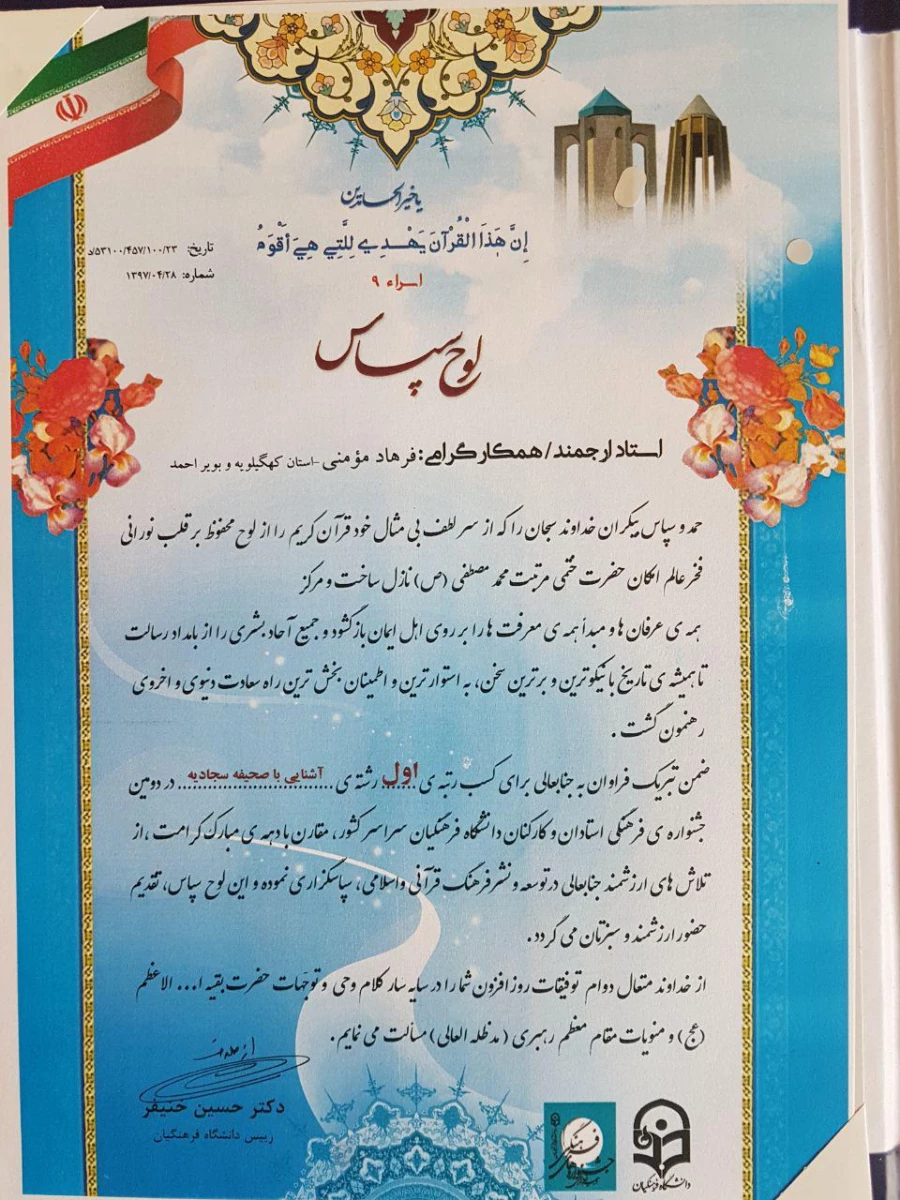 یا خیر الحامدین
إِنَّ هَذَا الْقُرْآنَ يَهْدِي لِلَّتِي هِيَ أَقْوَمُ
اسراء ۹
تاریخ: ۵۳۱۰۰/۴۵۷/۱۰۰/۲۳/د
شماره: ۱۳۹۷/۰۴/۲۸
لوح سپاس
استاد ارجمند/همکار گرامی: فرهاد مؤمنی -استان کهگیلویه و بویر احمد
حمد و سپاس بیکران خداوند سبحان را که از سر لطف بی مثال خود قرآن کریم را از لوح محفوظ بر قلب نورانی
فخر عالم امکان حضرت ختمی مرتبت محمد مصطفی (ص) نازل ساخت و مرکز
همه ی عرفان ها و مبدأ همه ی معرفت ها را بر روی اهل ایمان باز گشود و جمیع آحاد بشری را از بامداد رسالت
تا همیشه ی تاریخ با نیکوترین و برترین سخن، به استوارترین و اطمینان بخش ترین راه سعادت دنیوی و اخروی
رهنمون گشت .
ضمن تبریک فراوان به جنابعالی برای کسب رتبه ی اول رشته ی آشنایی با صحیفه سجادیه در دومین
جشنواره ی فرهنگی استادان و کارکنان دانشگاه فرهنگیان سراسر کشور، مقارن با دهه ی مبارک کرامت ، از
تلاش های ارزشمند جنابعالی در توسعه و نشر فرهنگ قرآنی و اسلامی، سپاسگزاری نموده و این لوح سپاس، تقدیم
حضور ارزشمند و سبزتان می گردد .
از خداوند متعال دوام توفیقات روز افزون شما را در سایه سار کلام وحی و توجّهات حضرت بقیه ا... الاعظم
(عج) و منویات مقام معظم رهبری (مدظله العالی) مسألت می نمایم .
دکتر حسین خنیفر
رییس دانشگاه فرهنگیان
دانشگاه فرهنگیان